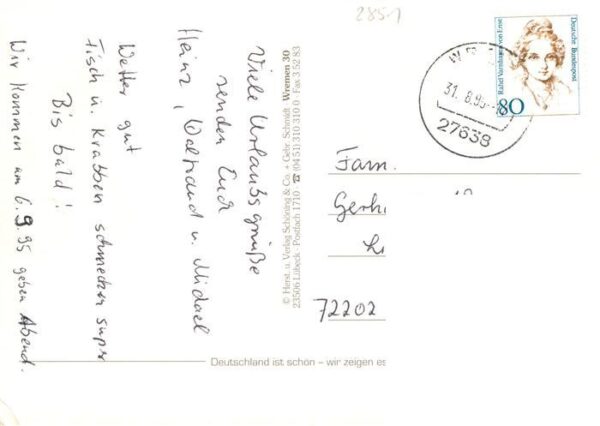 Viele Urlaubsgrüße
senden Euch
Heinz, Waltraud u. Michael
Wetter gut
Fisch u. Krabben schmecken super
Bis bald!
Wir kommen am 6.9.95 gegen Abend.
© Herst. u. Verlag Schöning & Co. + Gebr. Schmidt · Wremen 30
23506 Lübeck · Postfach 1710 · ☎ (04 51) 310 310 0 · Fax 3 52 83
2851
Deutsche Bundespost
Rahel Varnhagen von Ense
80
31. 8.95
27638
Fam.
Gerh
72202
Deutschland ist schön – wir zeigen es